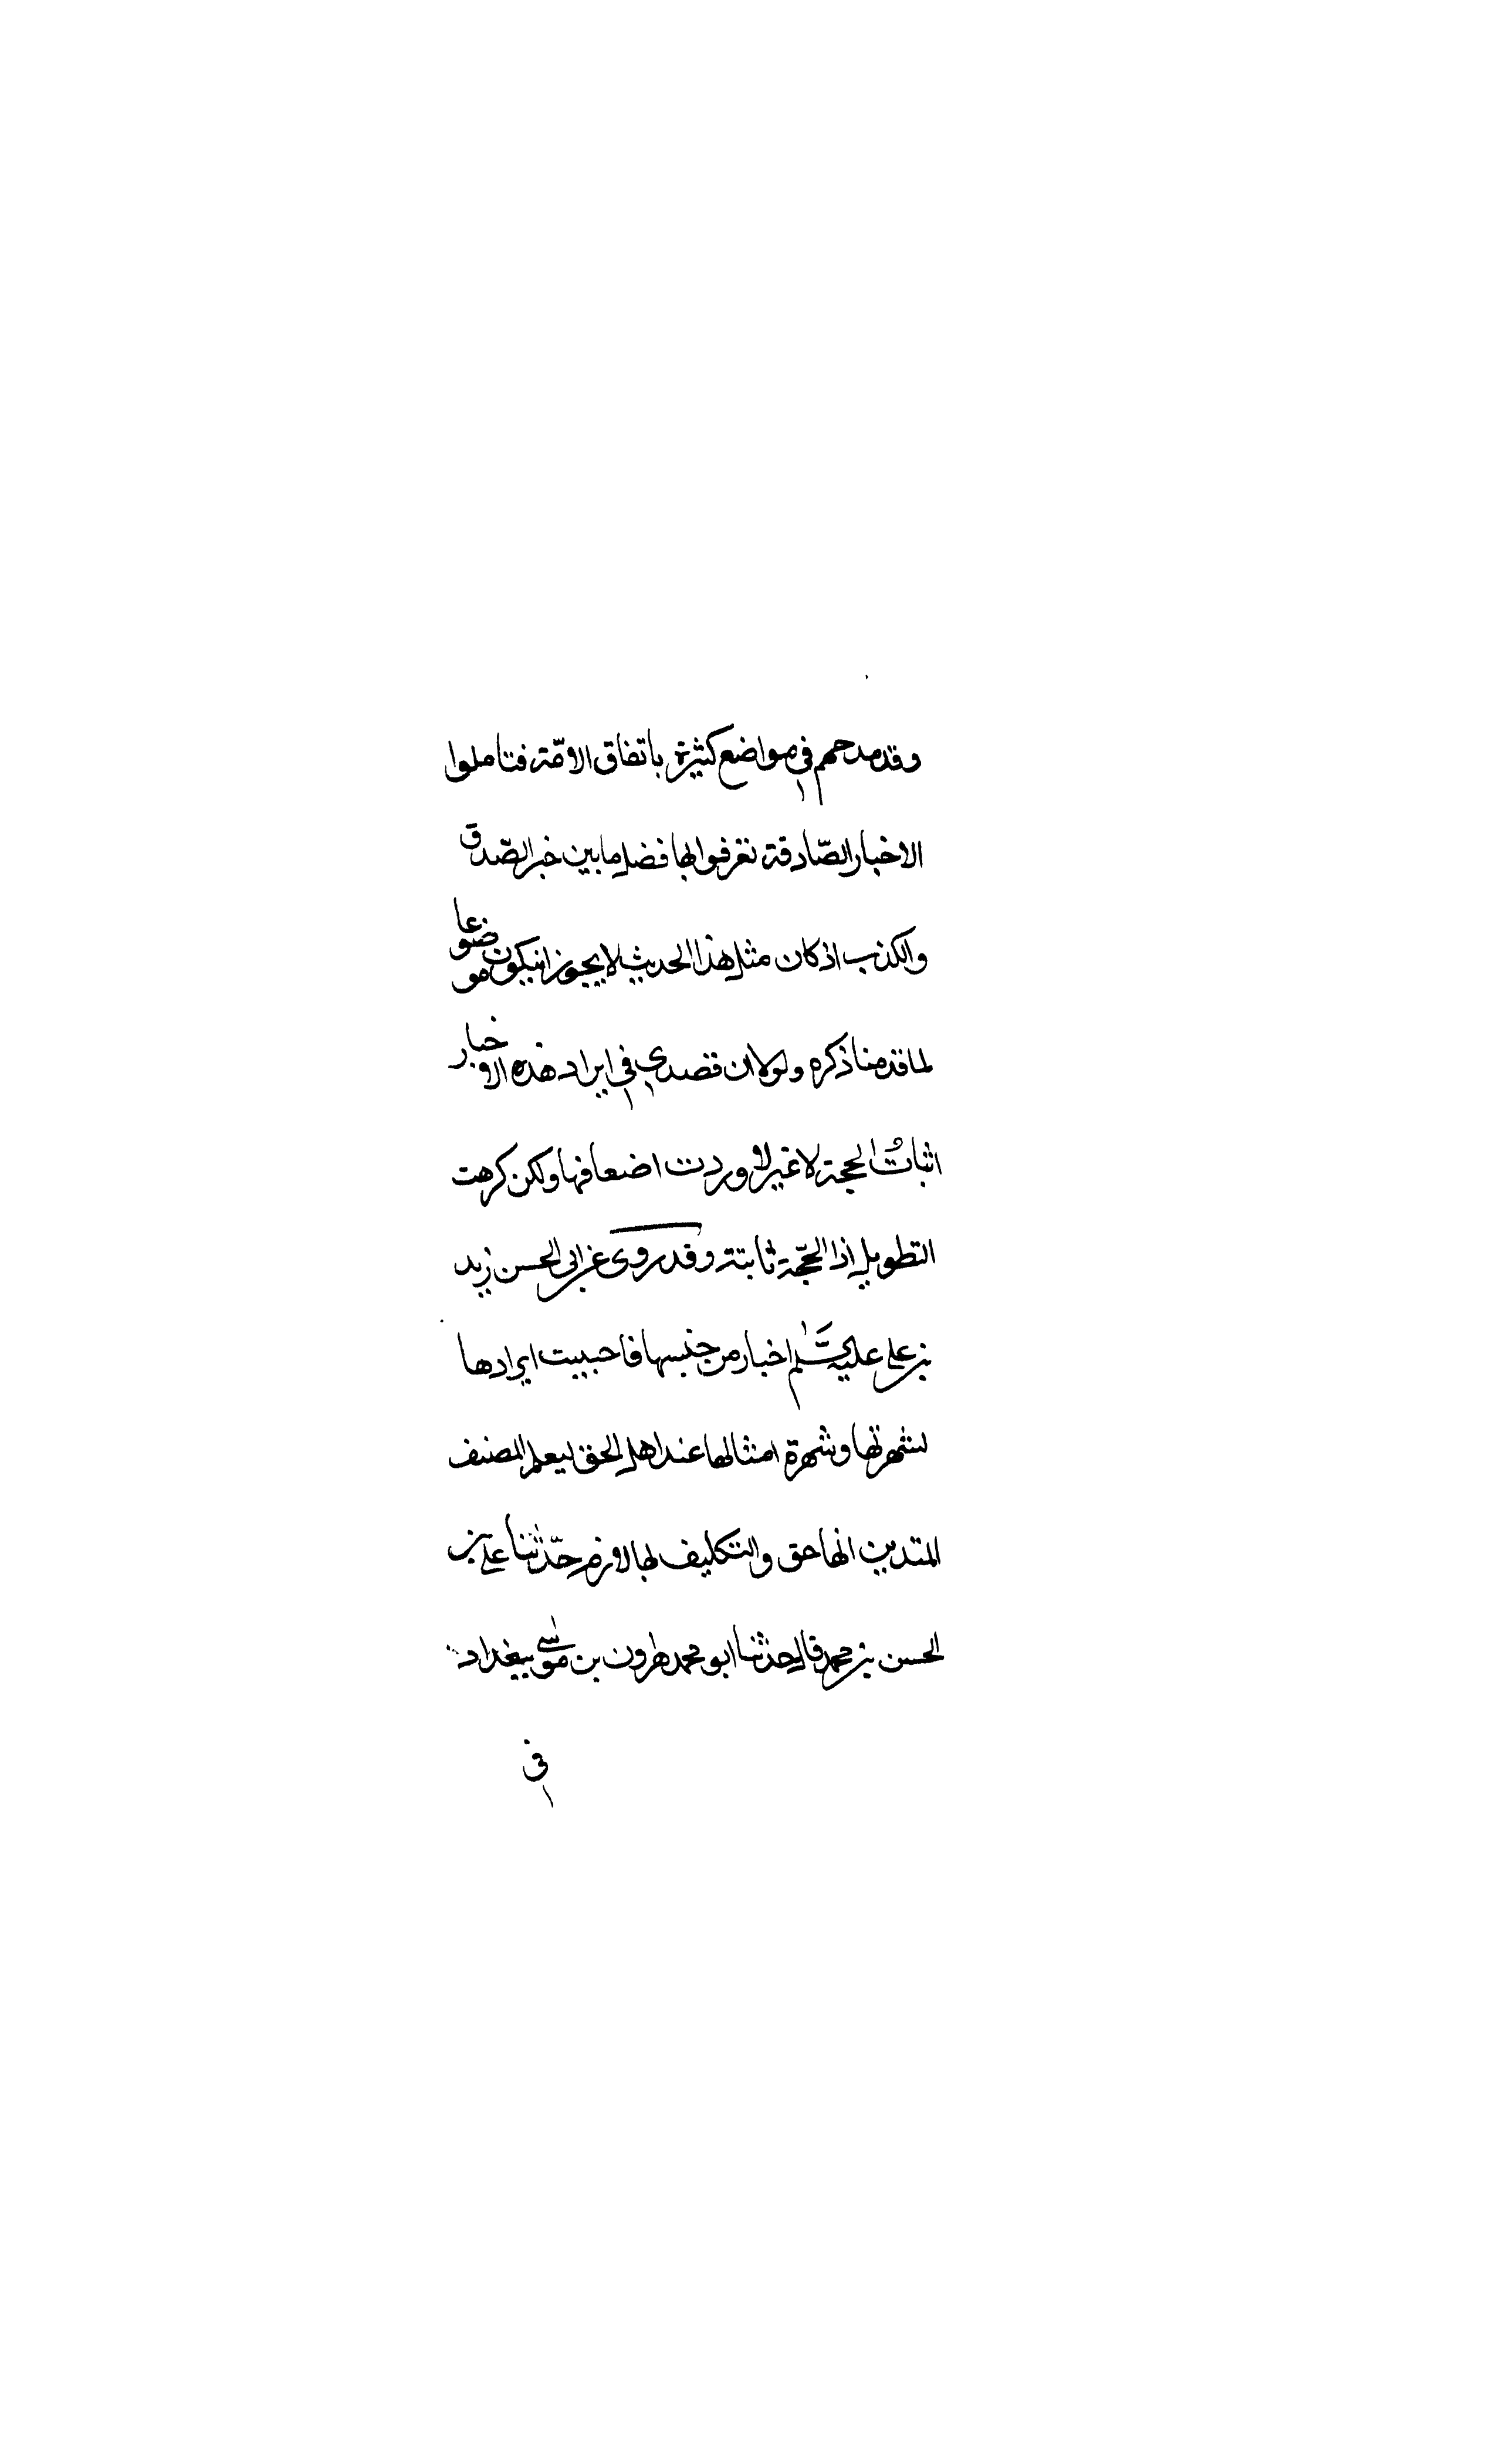 وقد مدحهم في مواضع كثيرة باتفاق الامّة فتاملوا
الاخبار الصّادقة تعرفوا بها فضل ما بين خبر الصّدق
والكذب اذ كان مثل هذا الحديث لا يجوز ان يكون موضوعا
لما قدمنا ذكره ولولا ان قصدي في ايراد هذه الاخبار
اثباتُ الحجة لا غير لاوردت اضعافها ولكن كرهت
التطويل اذا الحجّة ثابتة وقد روى عن ابى الحسن زيد
بن على عليه السّلم اخبار من جنسها فاحببت ايرادها
لشهرتها وشهرة امثالها عند اهل الحق ليعلم المصنف
المتدين انها حق والتكليف بها لازم حدّثنا على بن
الحسن بن محمد قال حدثنا ابو محمد هرون بن موسى ببغداد
في